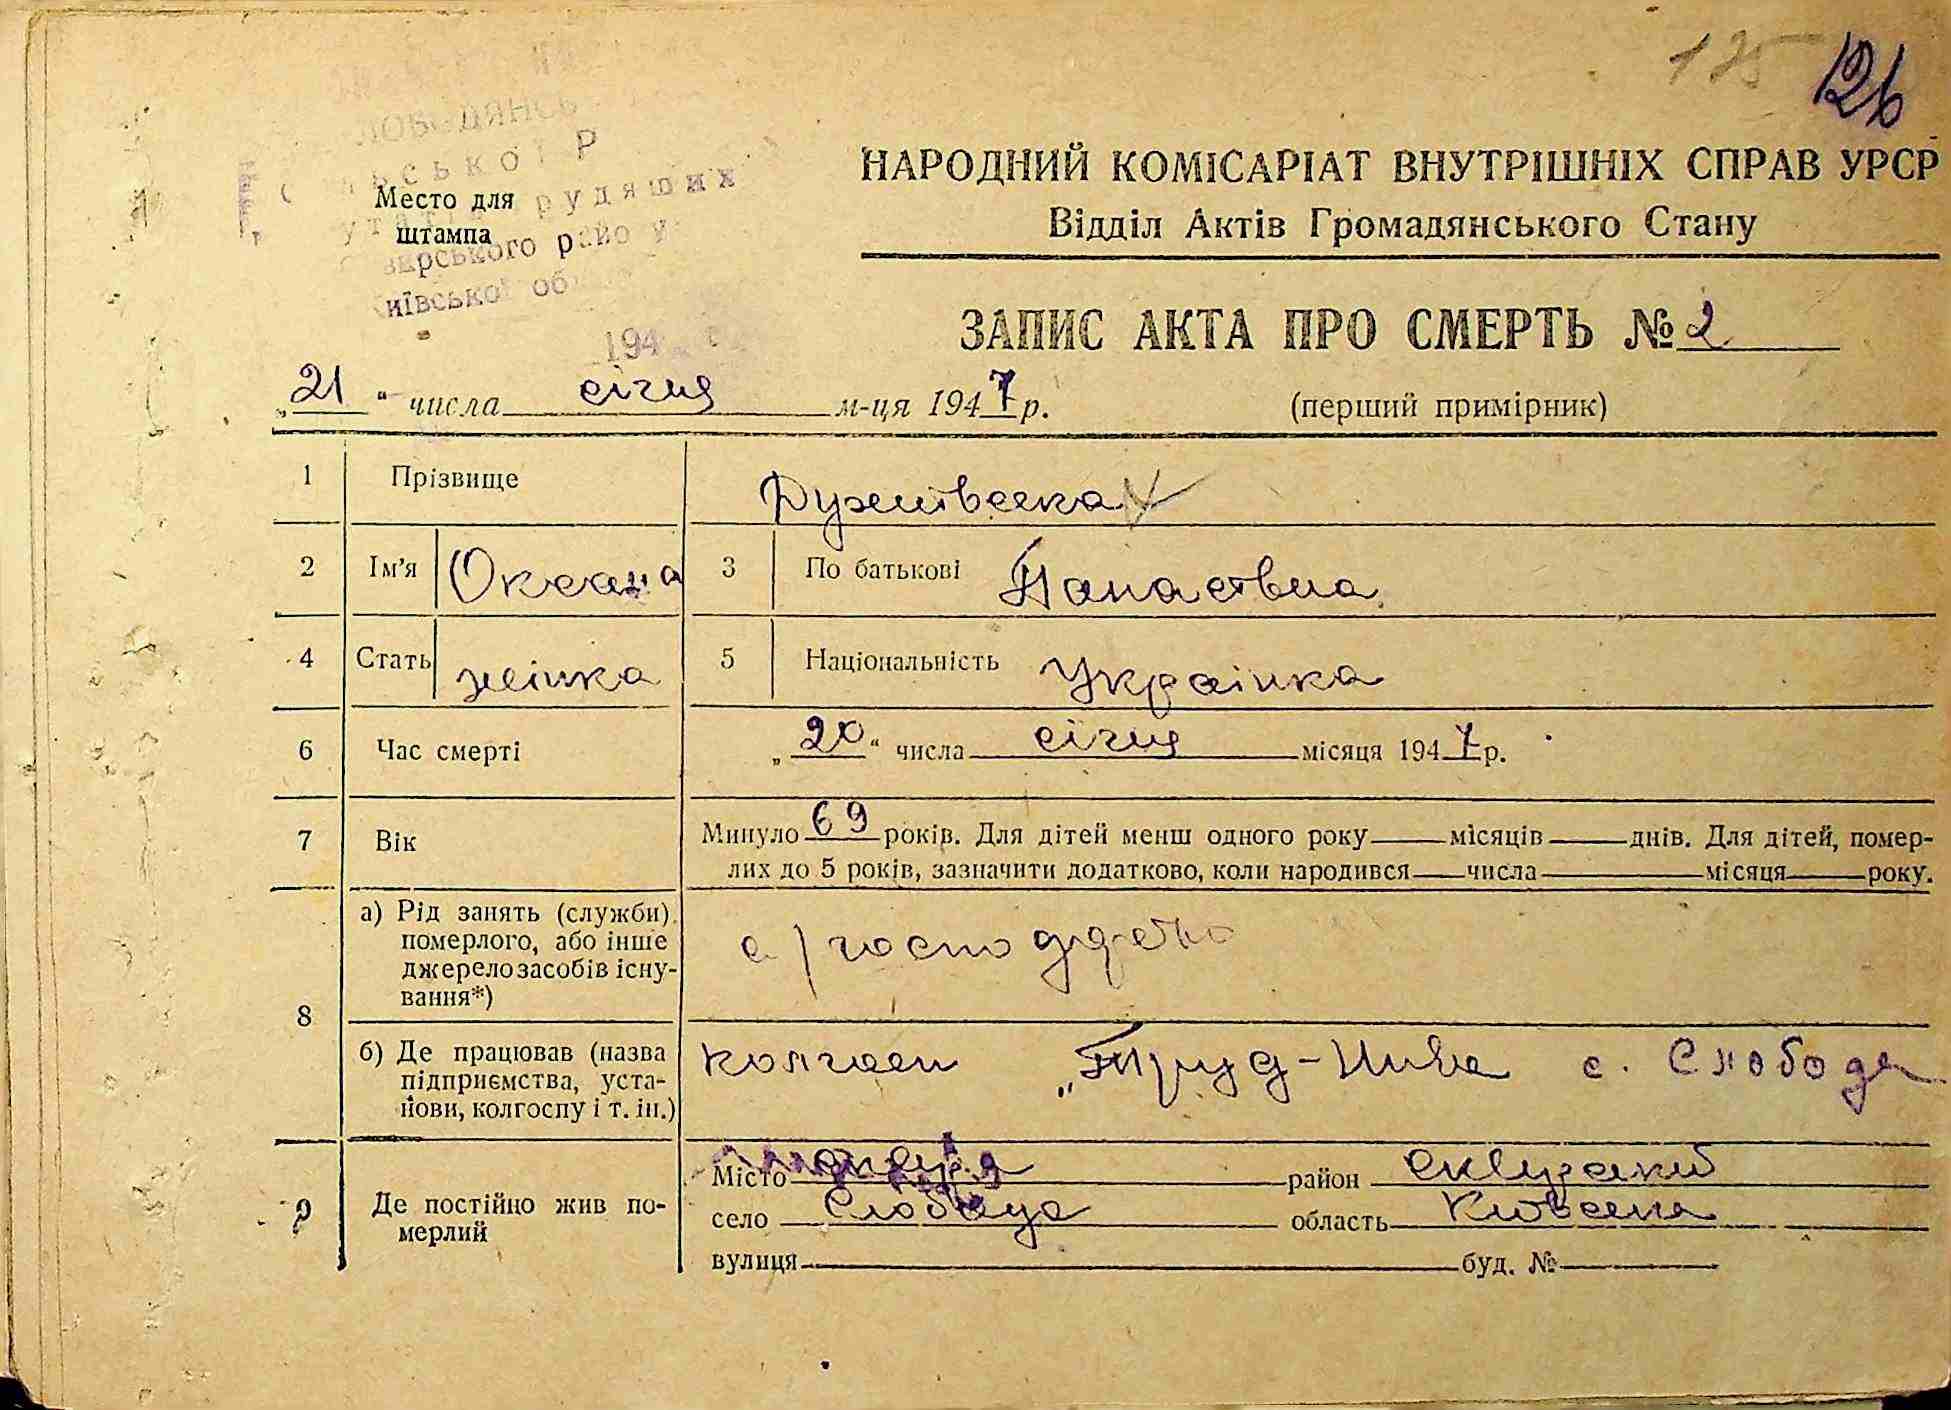 125 126
ЛОБОДЯНСЬ
ЛЬСЬКОЇ Р
Место для
штампа
УТАТІВ ТРУДЯЩИХ
вирського району
Київської об
194
НАРОДНИЙ КОМІСАРІАТ ВНУТРІШНІХ СПРАВ УРСР
Відділ Актів Громадянського Стану
ЗАПИС АКТА ПРО СМЕРТЬ № 2
„21“ числа січня м-ця 1947 р. (перший примірник)
1 Прізвище Ружинська
2 Ім'я Оксана 3 По батькові Панасівна
4 Стать жінка 5 Національність Українка
6 Час смерті „20“ числа січня місяця 1947 р.
7 Вік Минуло 69 років. Для дітей менш одного року місяців днів. Для дітей, помер-
лих до 5 років, зазначити додатково, коли народився числа місяця року.
8 а) Рід занять (служби) померлого, або інше джерело засобів існу-вання*) с/господарство
б) Де працював (назва підприємства, уста-нови, колгоспу і т. ін.) колгосп „Труд-Нива с. Слобода
9 Де постійно жив по-мерлий
Місто район сквирський
село Слобода область Київська
вулиця буд. №